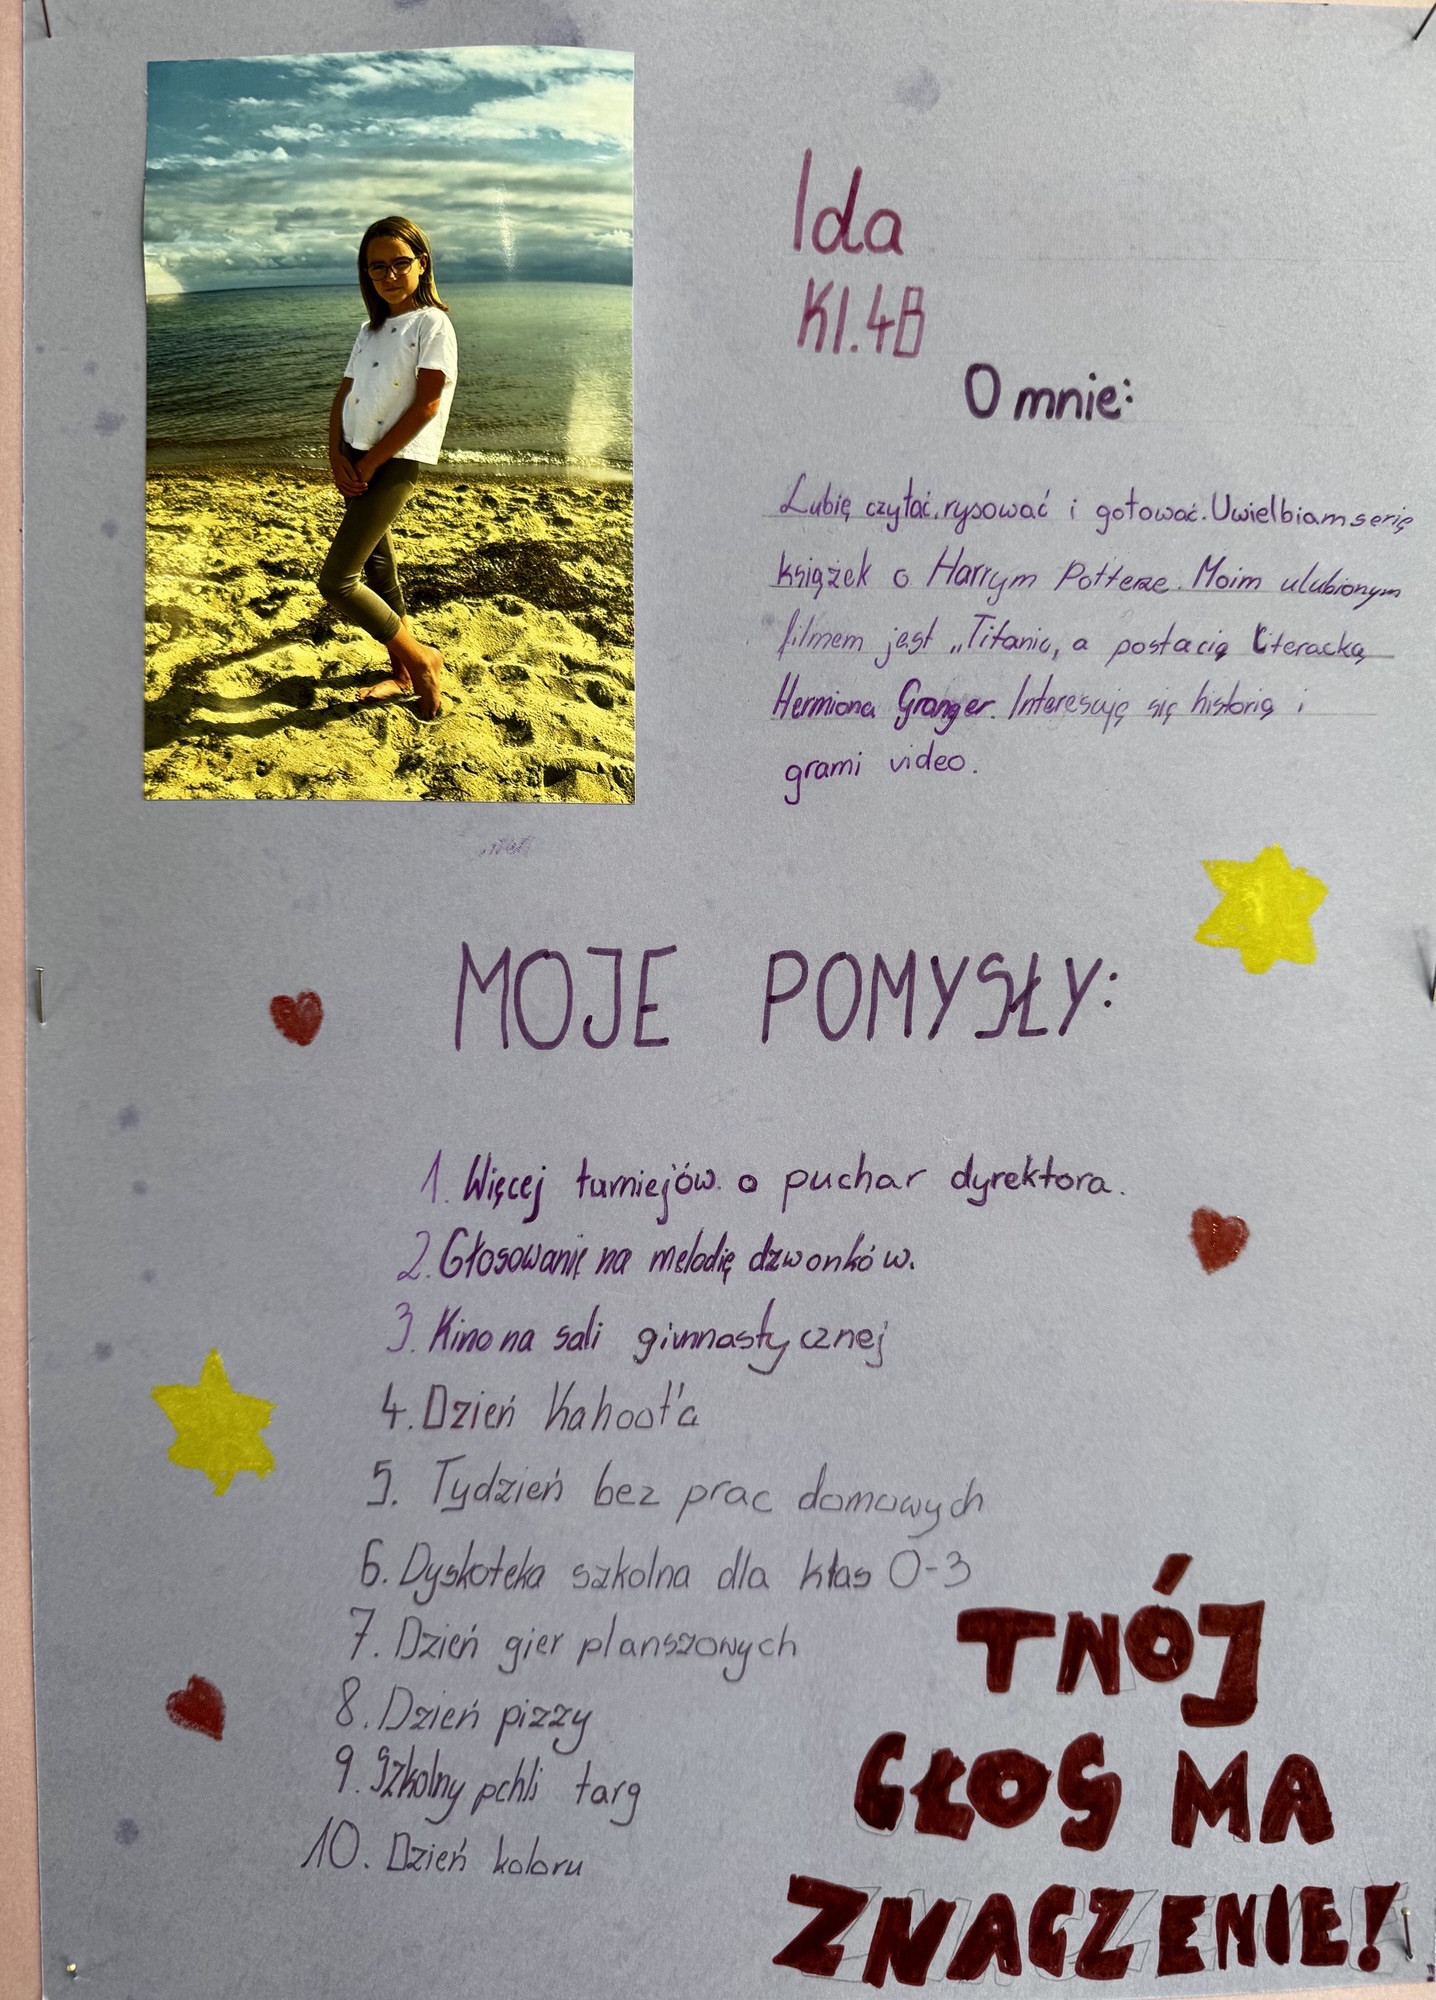 Ida
Kl.4B
O mnie:
Lubię czytać, rysować i gotować. Uwielbiam serię
książek o Harrym Potterze. Moim ulubionym
filmem jest „Titanic, a postacią literacką
Hermiona Granger. Interesuję się historią i
grami video.
MOJE POMYSŁY:
1. Więcej turniejów o puchar dyrektora.
2. Głosowanie na melodię dzwonków.
3. Kino na sali gimnastycznej
4. Dzień Kahoot'a
5. Tydzień bez prac domowych
6. Dyskoteka szkolna dla klas 0-3
7. Dzień gier planszowych
8. Dzień pizzy
9. Szkolny pchli targ
10. Dzień koloru
TWÓJ
GŁOS MA
ZNACZENIE!